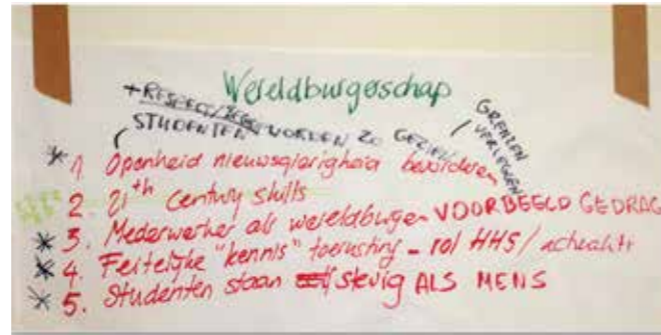 Wereldburgerschap
+ RESPECT /
STUDENTEN WORDEN ZO GEZIEN /
GRENZEN
VERLEGGEN
* 1 Openheid nieuwsgierigheid bevorderen
2. 21th century skills
* 3. Medewerker als wereldburger VOORBEELD GEDRAG
* 4. Feitelijke "kennis" toerusting - rol HHS /
* 5. Studenten staan stevig ALS MENS